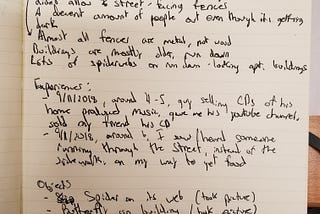 allow & street-facing fences
A decent amount of people out even though it's getting
dark
Almost all fences are metal, not wood
Buildings are mostly older, run down
Lots of spiderwebs on run down-looking apt. buildings
Experiences:
- 9/11/2018, around 4-5, guy selling CDs of his
home produced music, gave me his youtube channel,
sold my friend his CD
- 9/11/2018, around 6, I saw/heard someone
running through the street, instead of the
sidewalk, on my way to get food
Objects
- Spider on its web (took picture)
- Butterfly on building (took picture)